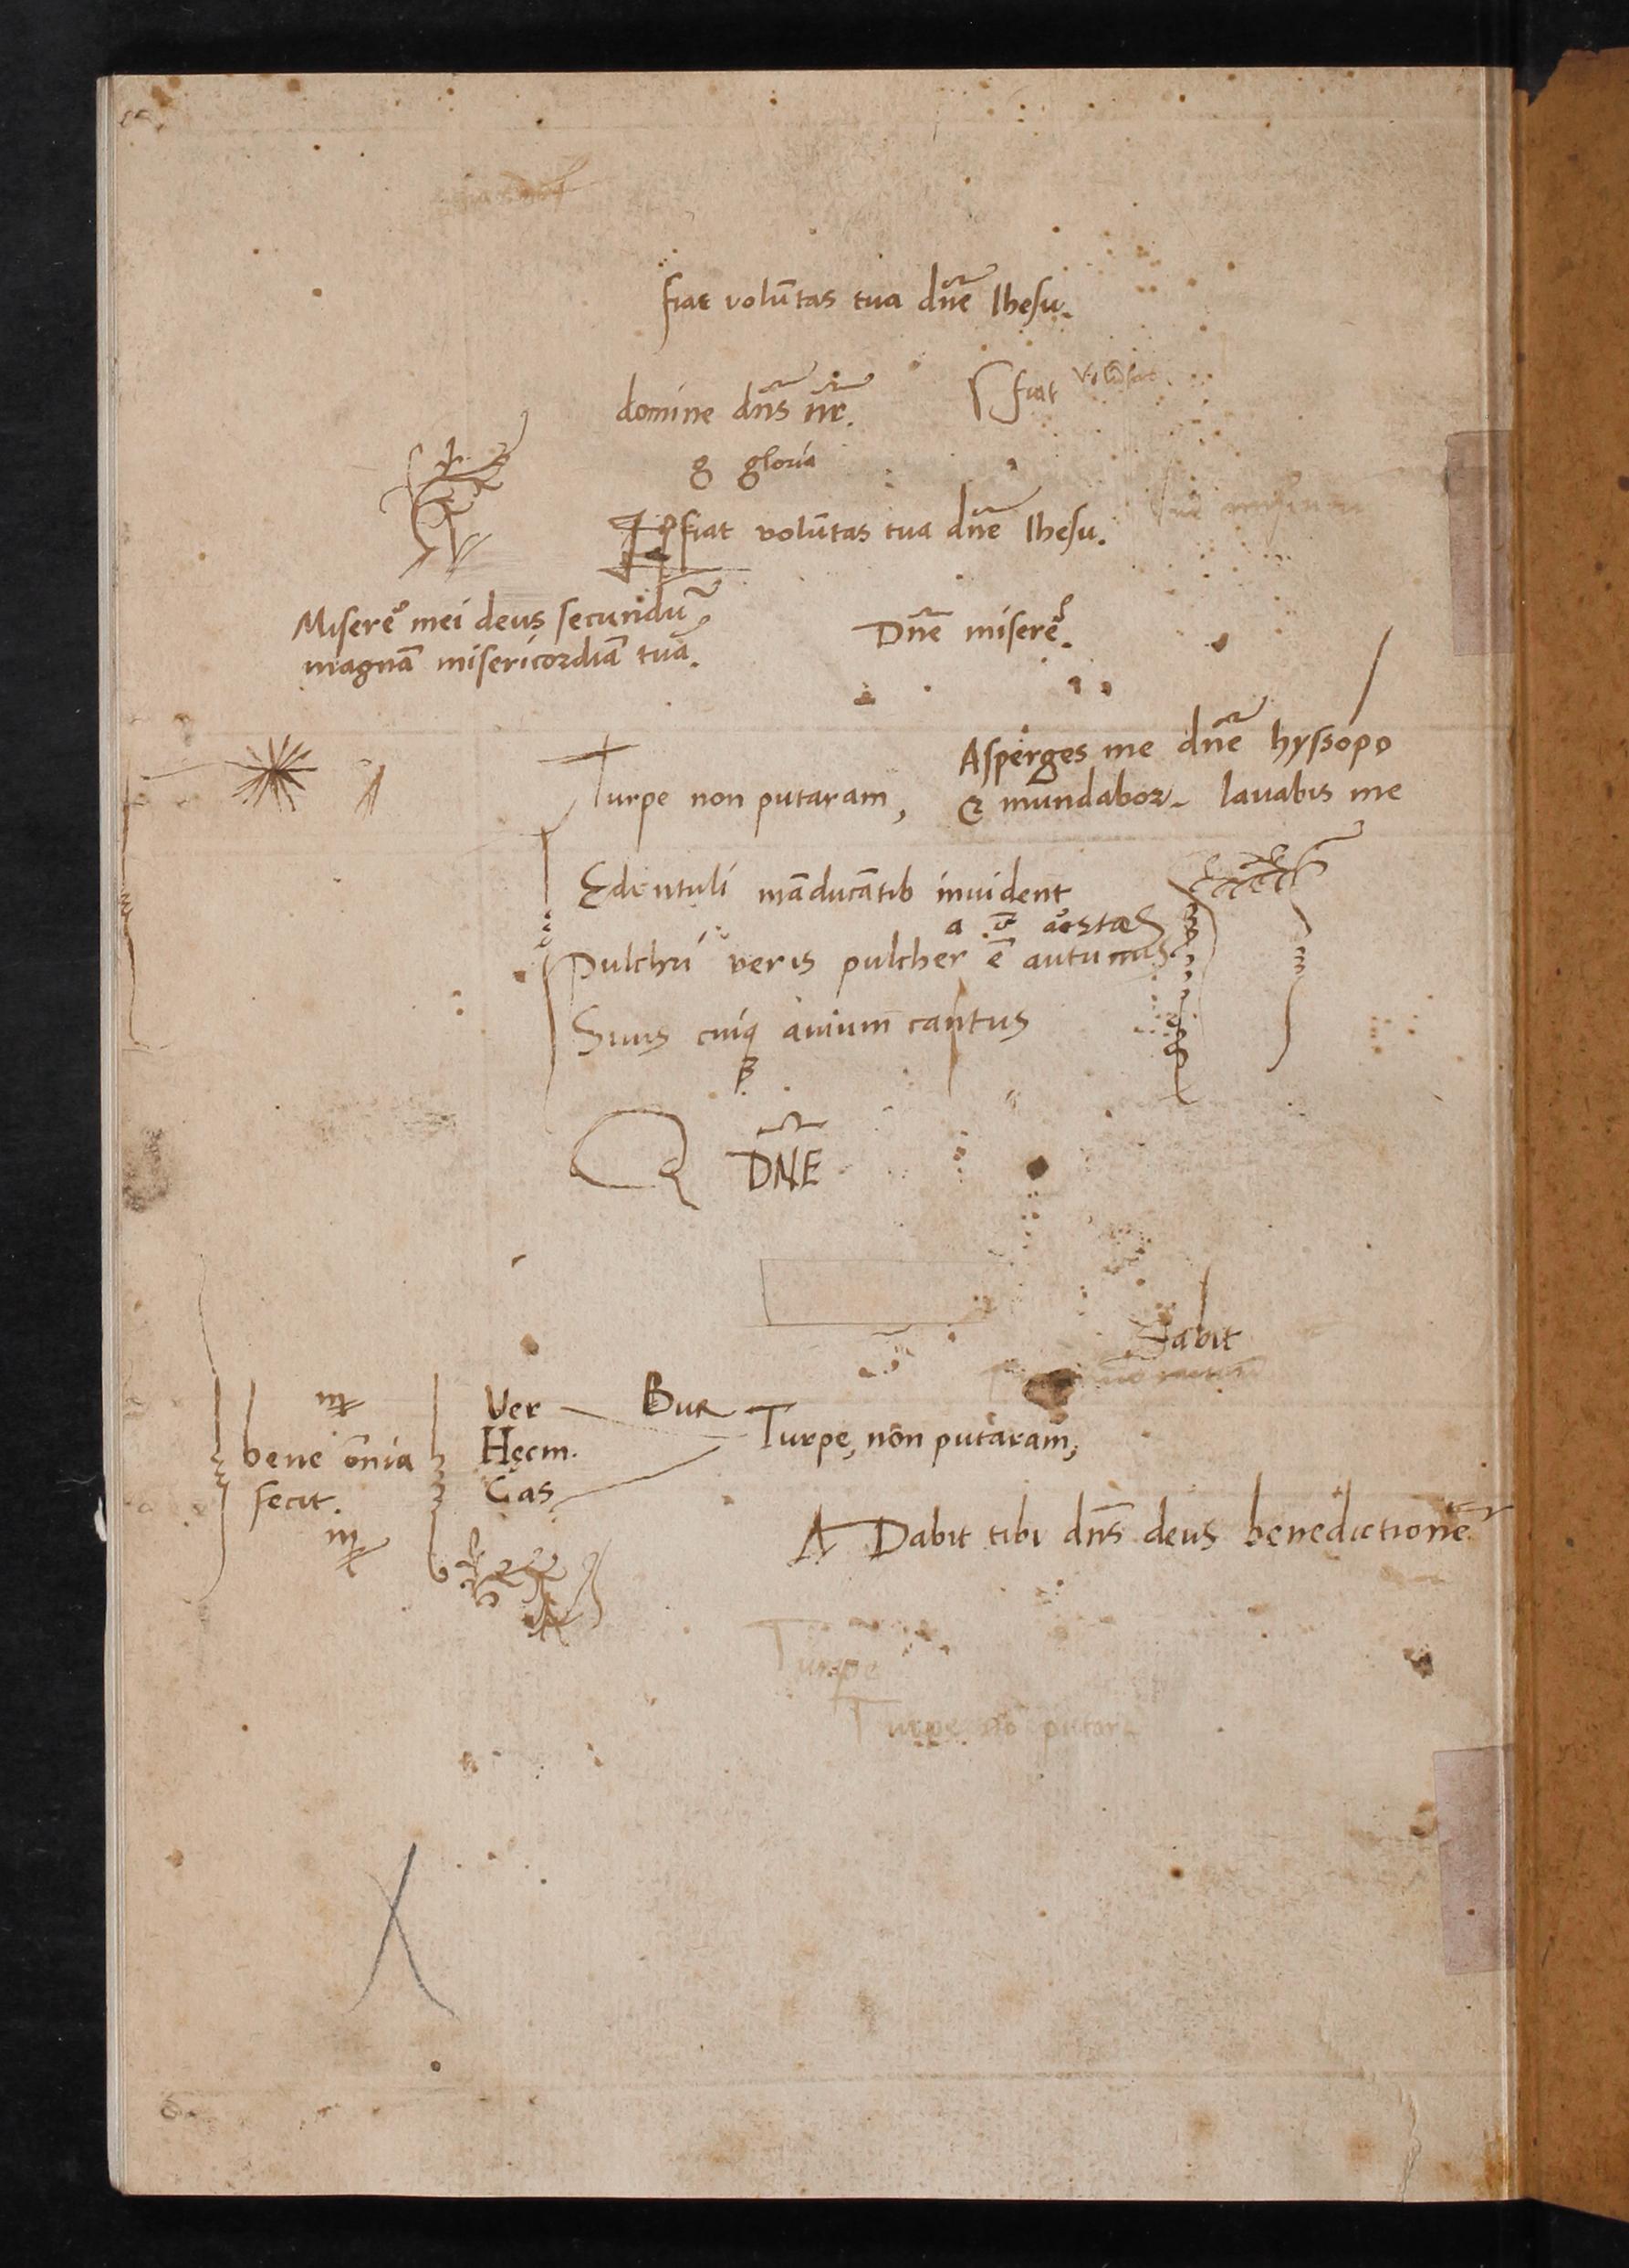 fiat volūtas tua dn̄e Ihesu.
domine dn̄s nr̄.
fiat
g gloria
fiat volūtas tua dn̄e Ihesu.
Miserē mei deus secundū
magnā misericordiā tuā.
Dn̄e miserē.
Asperges me dn̄e hyssopo
& mundabor. lavabis me
Turpe non putaram,
Edentuli māducātib invident
a
Pulchri veris pulcher ē autumus
Suus cuiq avium cantus
Q DN̄E
Dabit
bene ōnia
secit.
Ver
Hęcm.
Cas
Bur
Turpe, non putaram,
A Dabit tibi dn̄s deus benedictionē
Turpe
Turpe nō putar